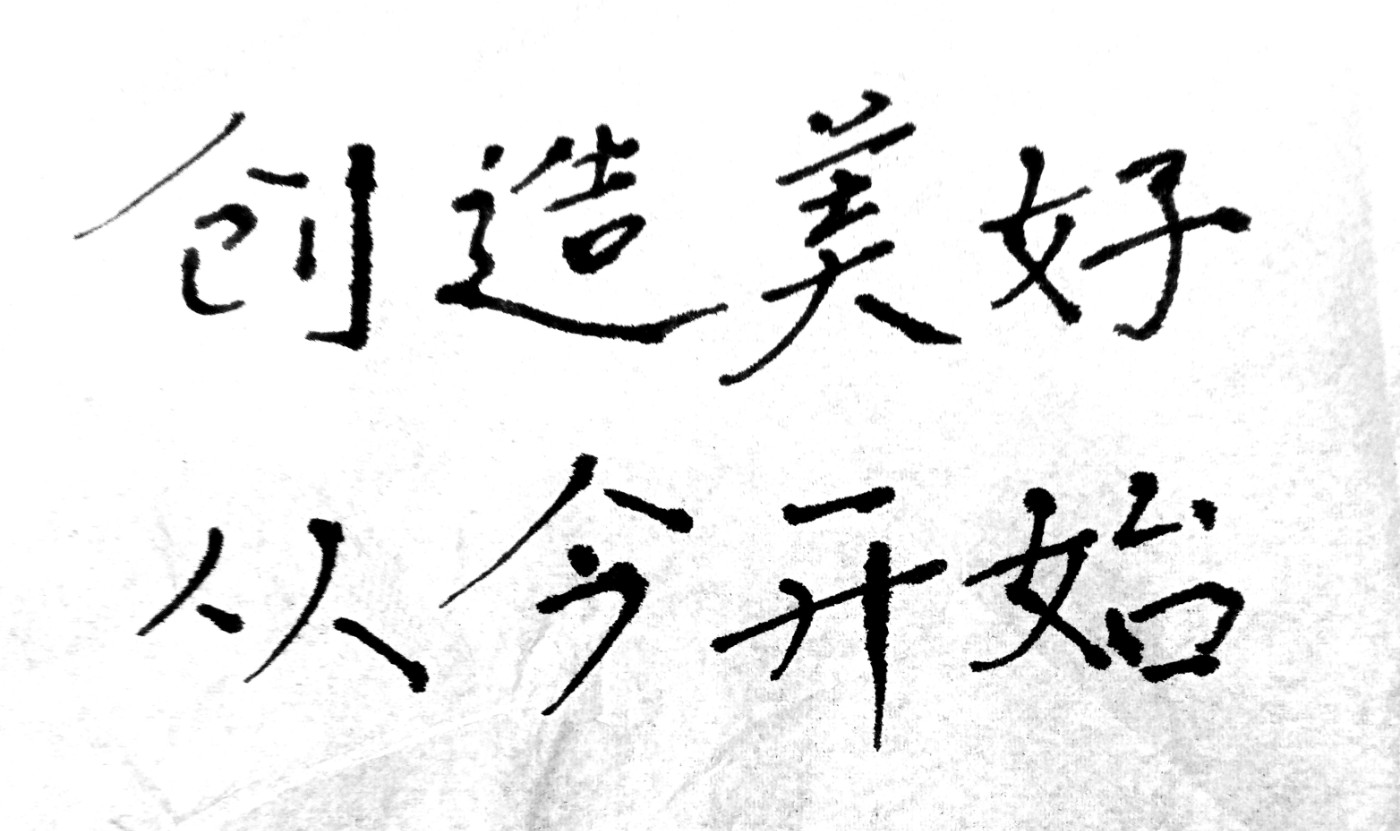 创造美好
从今开始